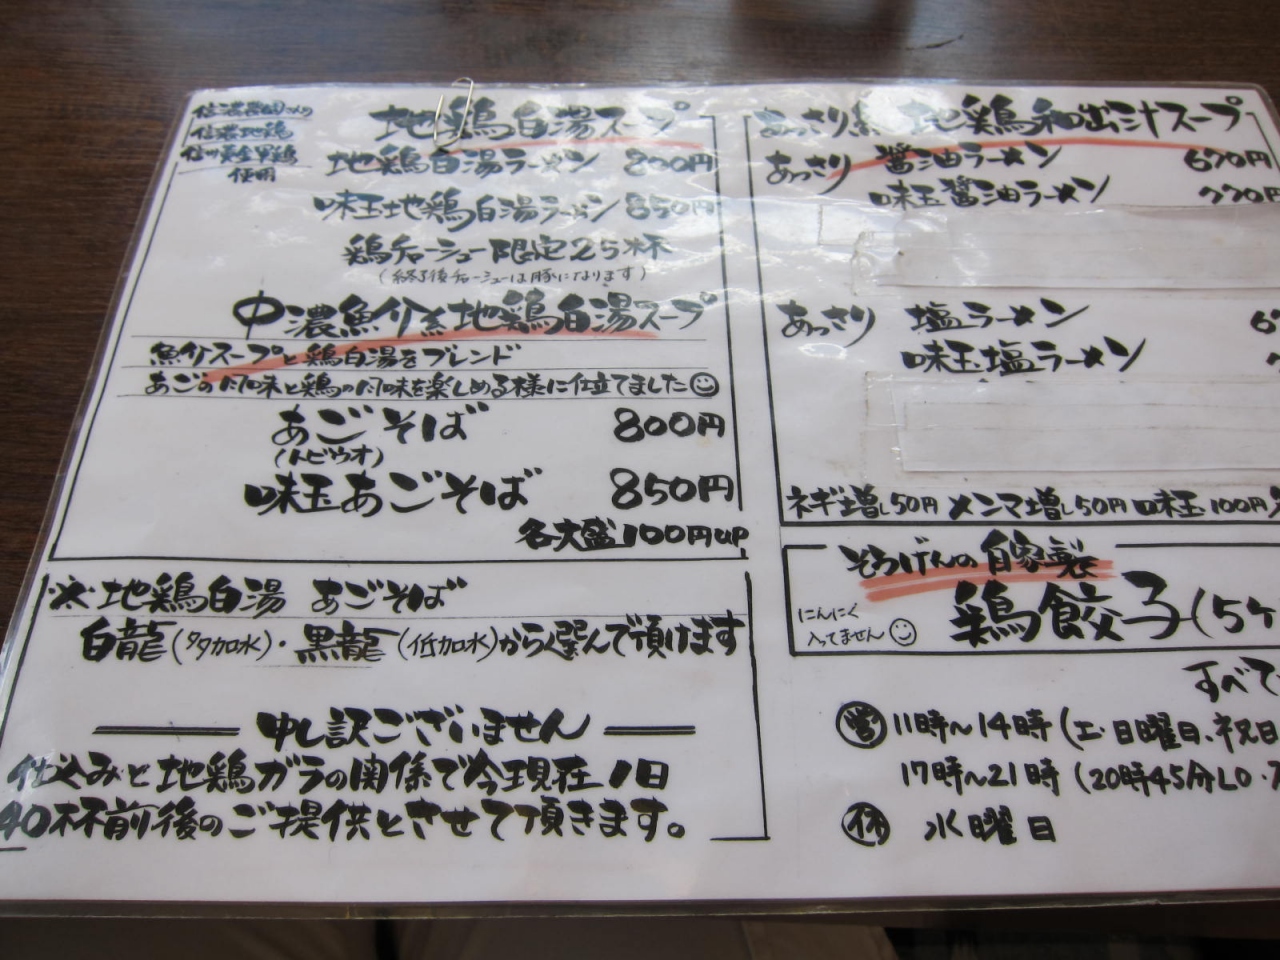 信濃地鶏
信州黄金軍鶏
使用
地鶏白湯スープ
地鶏白湯ラーメン 800円
味玉地鶏白湯ラーメン 850円
鶏チャーシュー限定25杯
(終了後チャーシューは豚になります)
中濃魚介系地鶏白湯スープ
魚介スープと鶏白湯をブレンド
あごの風味と鶏の風味を楽しめる様に仕立てました
あごそば 800円
(トビウオ)
味玉あごそば 850円
各大盛100円up
※地鶏白湯 あごそば
白龍(多加水)・黒龍(低加水)から選んで頂けます
申し訳ございません
仕込みと地鶏ガラの関係で今現在1日
40杯前後のご提供とさせて頂きます。
あっさり系 地鶏和出汁スープ
あっさり 醤油ラーメン 670円
味玉醤油ラーメン 770円
あっさり 塩ラーメン 6
味玉塩ラーメン
ネギ増し50円 メンマ増し50円 味玉100円
そろげんの自家製
鶏餃子(5ケ
にんにく
入ってません
すべて
営 11時〜14時(土・日曜日、祝日
17時〜21時(20時45分LO・
休 水曜日